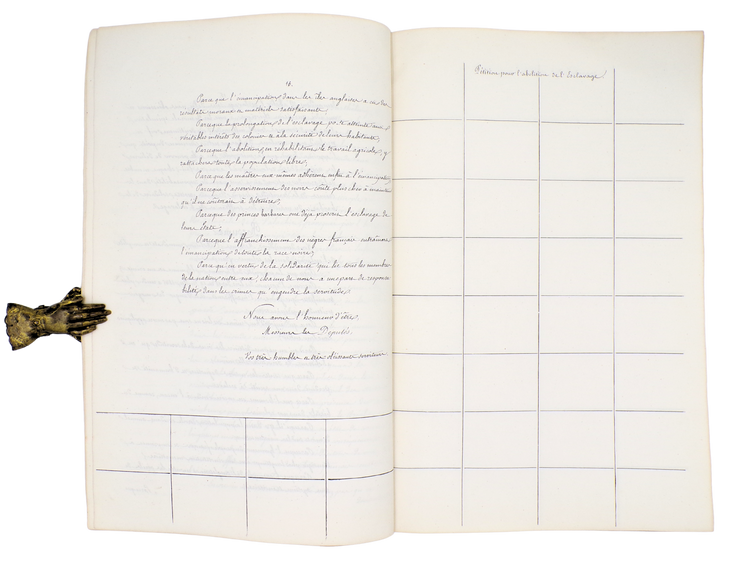 4.
Parce que l'émancipation dans les îles anglaises a eu des
résultats moraux et matériels satisfaisants;
Parce que la prolongation de l'esclavage porte atteinte aux
véritables intérêts des colonies et à la sécurité de leurs habitants;
Parce que l'abolition, en réhabilitant le travail agricole, y
rattachera toute la population libre;
Parce que les maîtres eux-mêmes adhèrent enfin à l'émancipation;
Parce que l'asservissement des noirs coûte plus cher à maintenir
qu'il ne coûterait à détruire;
Parce que des princes barbares ont déjà proscrit l'esclavage de
leurs états;
Parce que l'affranchissement des nègres français entraînera
l'émancipation de toute la race noire;
Parce qu'en vertu de la solidarité qui lie tous les membres
de la nation entre eux, chacun de nous a une part de responsa-
bilité dans les crimes qu'engendre la servitude.
Nous avons l'honneur d'être,
Messieurs les Députés,
Vos très humbles et très obéissants serviteurs
Pétition pour l'abolition de l'Esclavage.